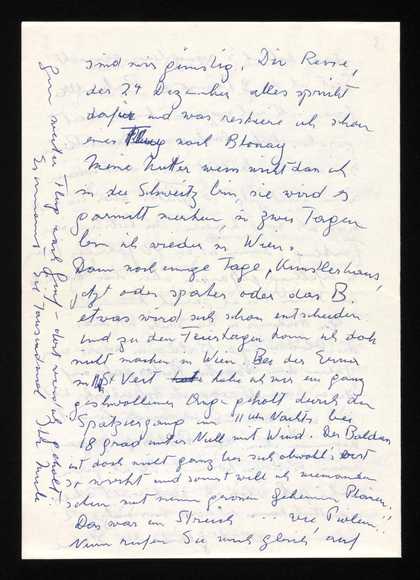 sind mir günstig. Die Reise,
der 24 Dezember alles spricht
dafür und was reserviere ich schon
einen nach Blonay
Meine Mutter weiss nicht dass ich
in der Schweitz bin, sie wird es
garnicht merken, in zwei Tagen
bin ich wieder in Wien.
Dann noch einige Tage, Künstlerhaus,
jetzt oder später oder das B.
etwas wird sich schon entscheiden
und zu den Feiertagen kann ich doch
nicht machen in Wien. Bei der
in St Veit habe ich mir ein ganz
geschwollenes Auge geholt durch den
Spatziergang um 11 Uhr Nachts bei
18 grad unter Null mit Wind. Der
ist doch nicht ganz bei sich obwohl's dort
so und somit will ich niemanden
sehen mit meinen geheimen Plänen!!
Das war ein Streich ... wie
Nun rufen Sie mich gleich auf
Flug nach Genf - dort werd ich geholt.
Tausendmal Ihre